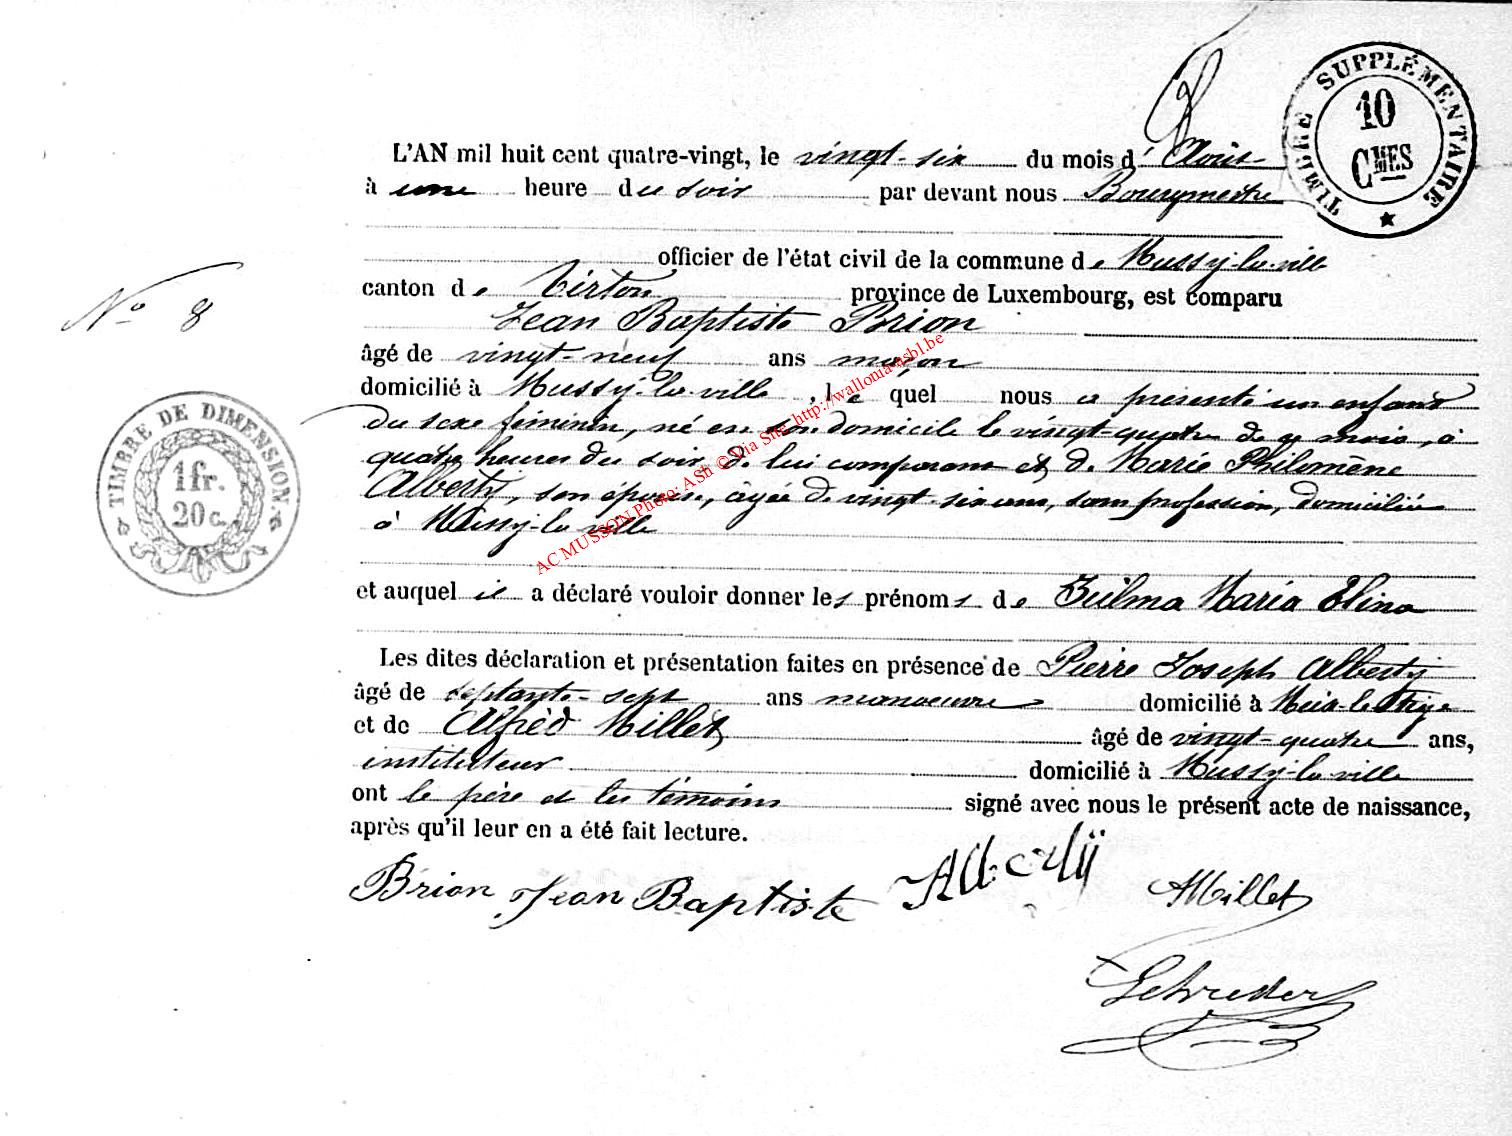 TIMBRE SUPPLÉMENTAIRE
10
CMES
L'AN mil huit cent quatre-vingt, le vingt-six du mois d'Août
à une heure du soir par devant nous Bourgmestre
officier de l'état civil de la commune de Mussy-la-ville
canton de Virton province de Luxembourg, est comparu
N° 8
Jean Baptiste Brion
âgé de vingt-neuf ans maçon
domicilié à Mussy-la-ville, le quel nous a présenté un enfant
du sexe féminin, né en son domicile le vingt-quatre de ce mois, à
quatre heures du soir, de lui comparant et de Marie Philomène
Alberty, son épouse, âgée de vingt-six ans, sans profession, domiciliée
à Mussy-la-ville
TIMBRE DE DIMENSION.
1 fr.
20 c.
et auquel il a déclaré vouloir donner les prénoms de Zuilma Maria Elina
Les dites déclaration et présentation faites en présence de Pierre Joseph Alberty
âgé de septante-sept ans manoeuvre domicilié à Meix-le-Tige
et de Alfred Millet âgé de vingt-quatre ans,
instituteur domicilié à Mussy-la-ville
ont le père et les témoins signé avec nous le présent acte de naissance,
après qu'il leur en a été fait lecture.
Brion Jean Baptiste Alberty AMillet
AC MUSSON Photo: ASh © Via Site http://wallonia-asbl.be